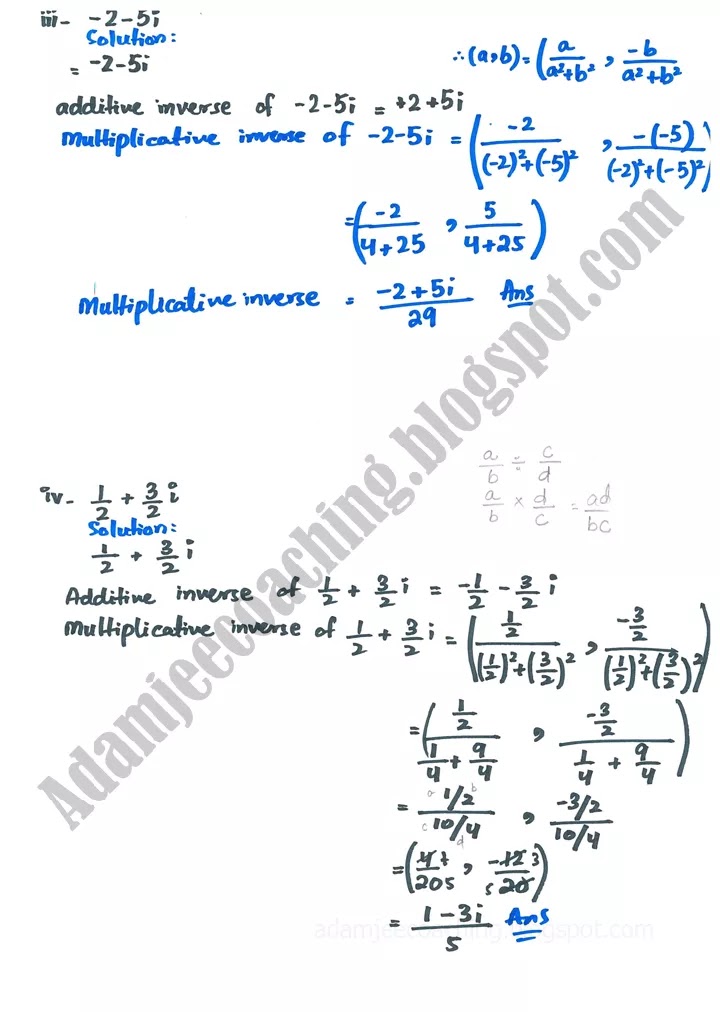 iii- -2-5i
Solution:
= -2-5i
∴(a,b)=(a/a²+b² , -b/a²+b²
additive inverse of -2-5i = +2+5i
Multiplicative inverse of -2-5i = (-2/(-2)²+(-5)² , -(-5)/(-2)²+(-5)²)
=(-2/4+25 , 5/4+25)
Multiplicative inverse = -2+5i/29 Ans
a/b ÷ c/d
a/b × d/c = ad/bc
iv- 1/2 + 3/2 i
Solution:
1/2 + 3/2 i
Additive inverse of 1/2 + 3/2 i = -1/2 - 3/2 i
Multiplicative inverse of 1/2 + 3/2 i = (1/2/(1/2)²+(3/2)² , -3/2/(1/2)²+(3/2)²)
=(1/2/1/4 + 9/4 , -3/2/1/4 + 9/4)
= a 1/2 b/c 10/4 d , -3/2/10/4
=(4 1/20 5 , -12 3/5 20)
= 1-3i/5 Ans
Adamjeecoaching.blogspot.com
adamjeecoaching.blogspot.com